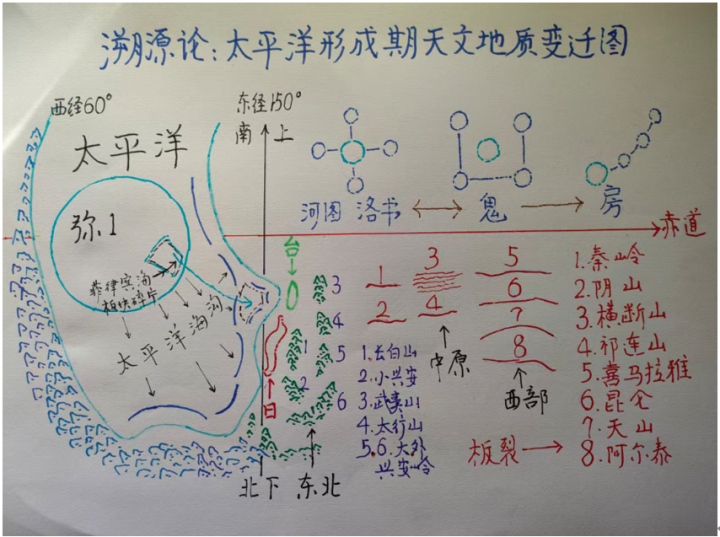 溯源论:太平洋形成期天文地质变迁图
西经60°
东径150°
南
上
太平洋
弥.1
河图 洛书
鬼
房
赤道
菲律宾海
板块碎片
太平洋海沟
台
日
3
4
5
6
1
2
1
2
3
4
中原
5
6
7
8
西部
1.长白山
2.小兴安
3.武夷山
4.太行山
5.6.大外
兴安岭
1.秦岭
2.阴山
3.横断山
4.祁连山
5.喜马拉雅
6.昆仑
7.天山
8.阿尔泰
板裂
北 下 东北